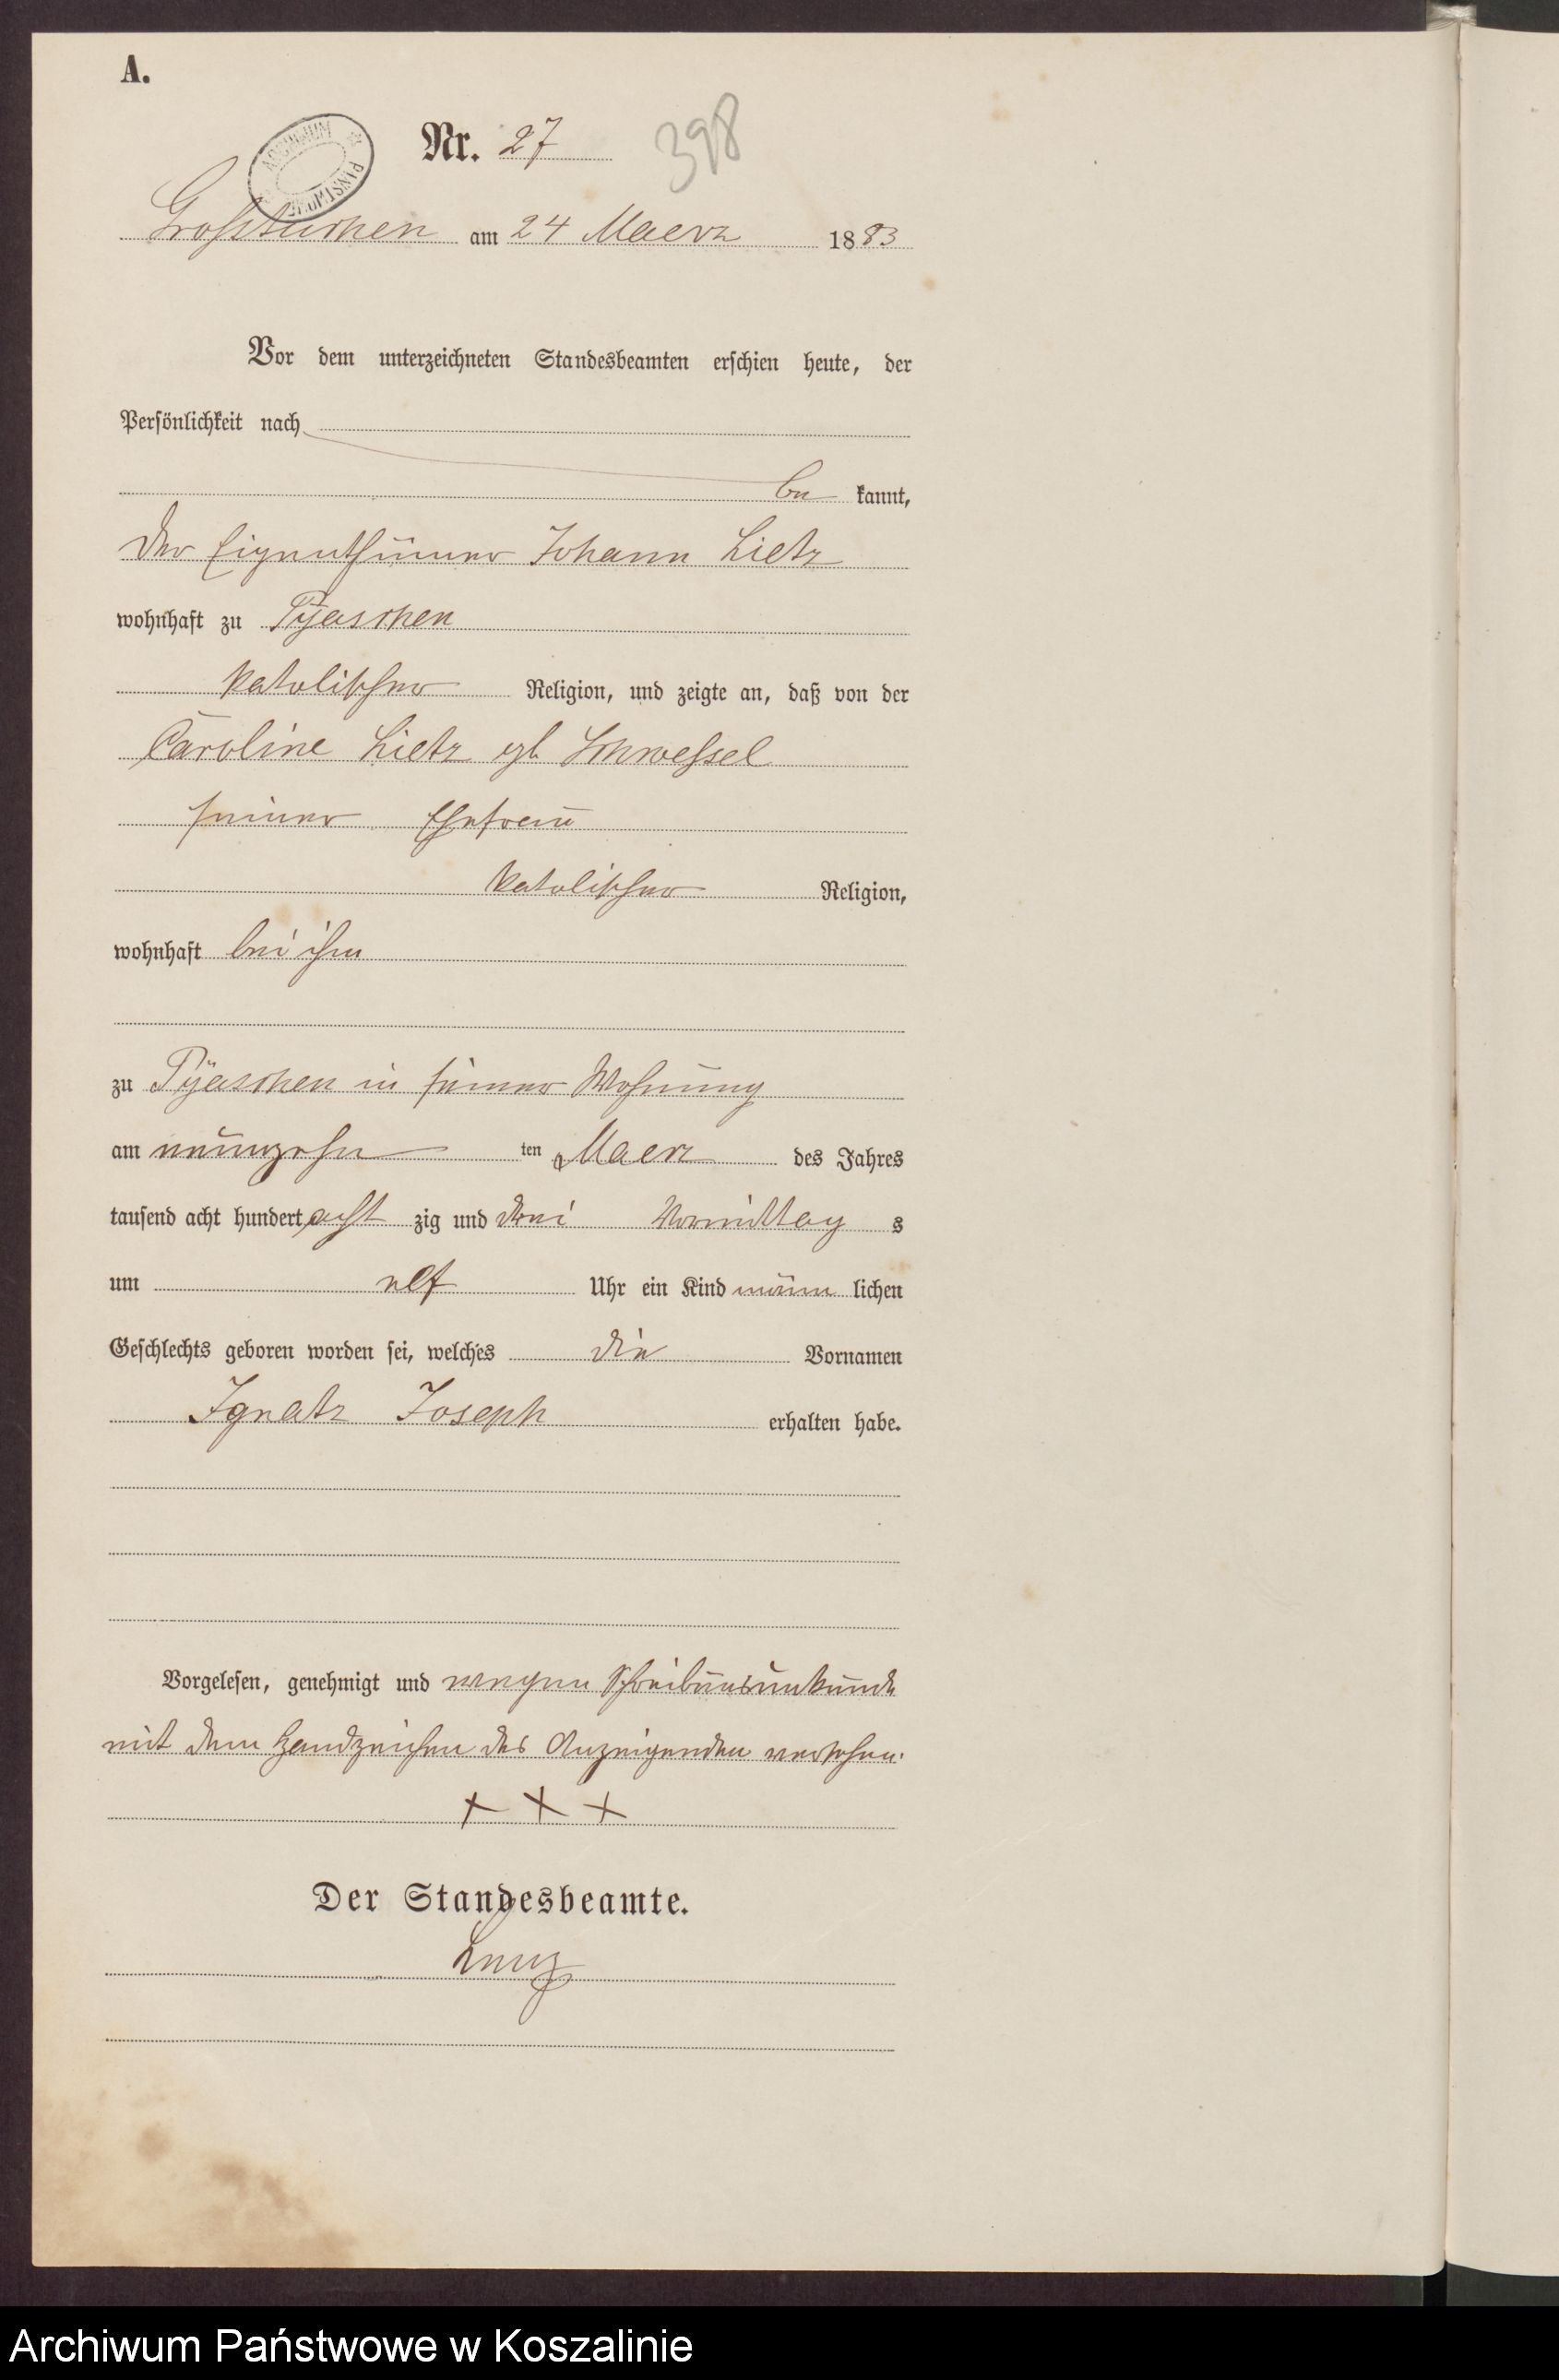 A.
Nr. 27 398
ARCHIWUM PAŃSTWOWE
Großtuchen am 24 Maerz 1883
Vor dem unterzeichneten Standesbeamten erschien heute, der
Persönlichkeit nach
be kannt,
der Eigenthümer Johann Lietz
wohnhaft zu Pyaschen
katolischer Religion, und zeigte an, daß von der
Caroline Lietz geb Schwessel
seiner Ehefrau
katolischer Religion,
wohnhaft bei ihm
zu Pyaschen in seiner Wohnung
am neunzehn ten Maerz des Jahres
tausend acht hundert acht zig und drei Vormittag s
um elf Uhr ein Kind männ lichen
Geschlechts geboren worden sei, welches die Vornamen
Ignatz Joseph erhalten habe.
Vorgelesen, genehmigt und wegen Schreibensunkunde
mit dem Handzeichen des Anzeigenden versehen.
+ + +
Der Standesbeamte.
Lenz
Archiwum Państwowe w Koszalinie